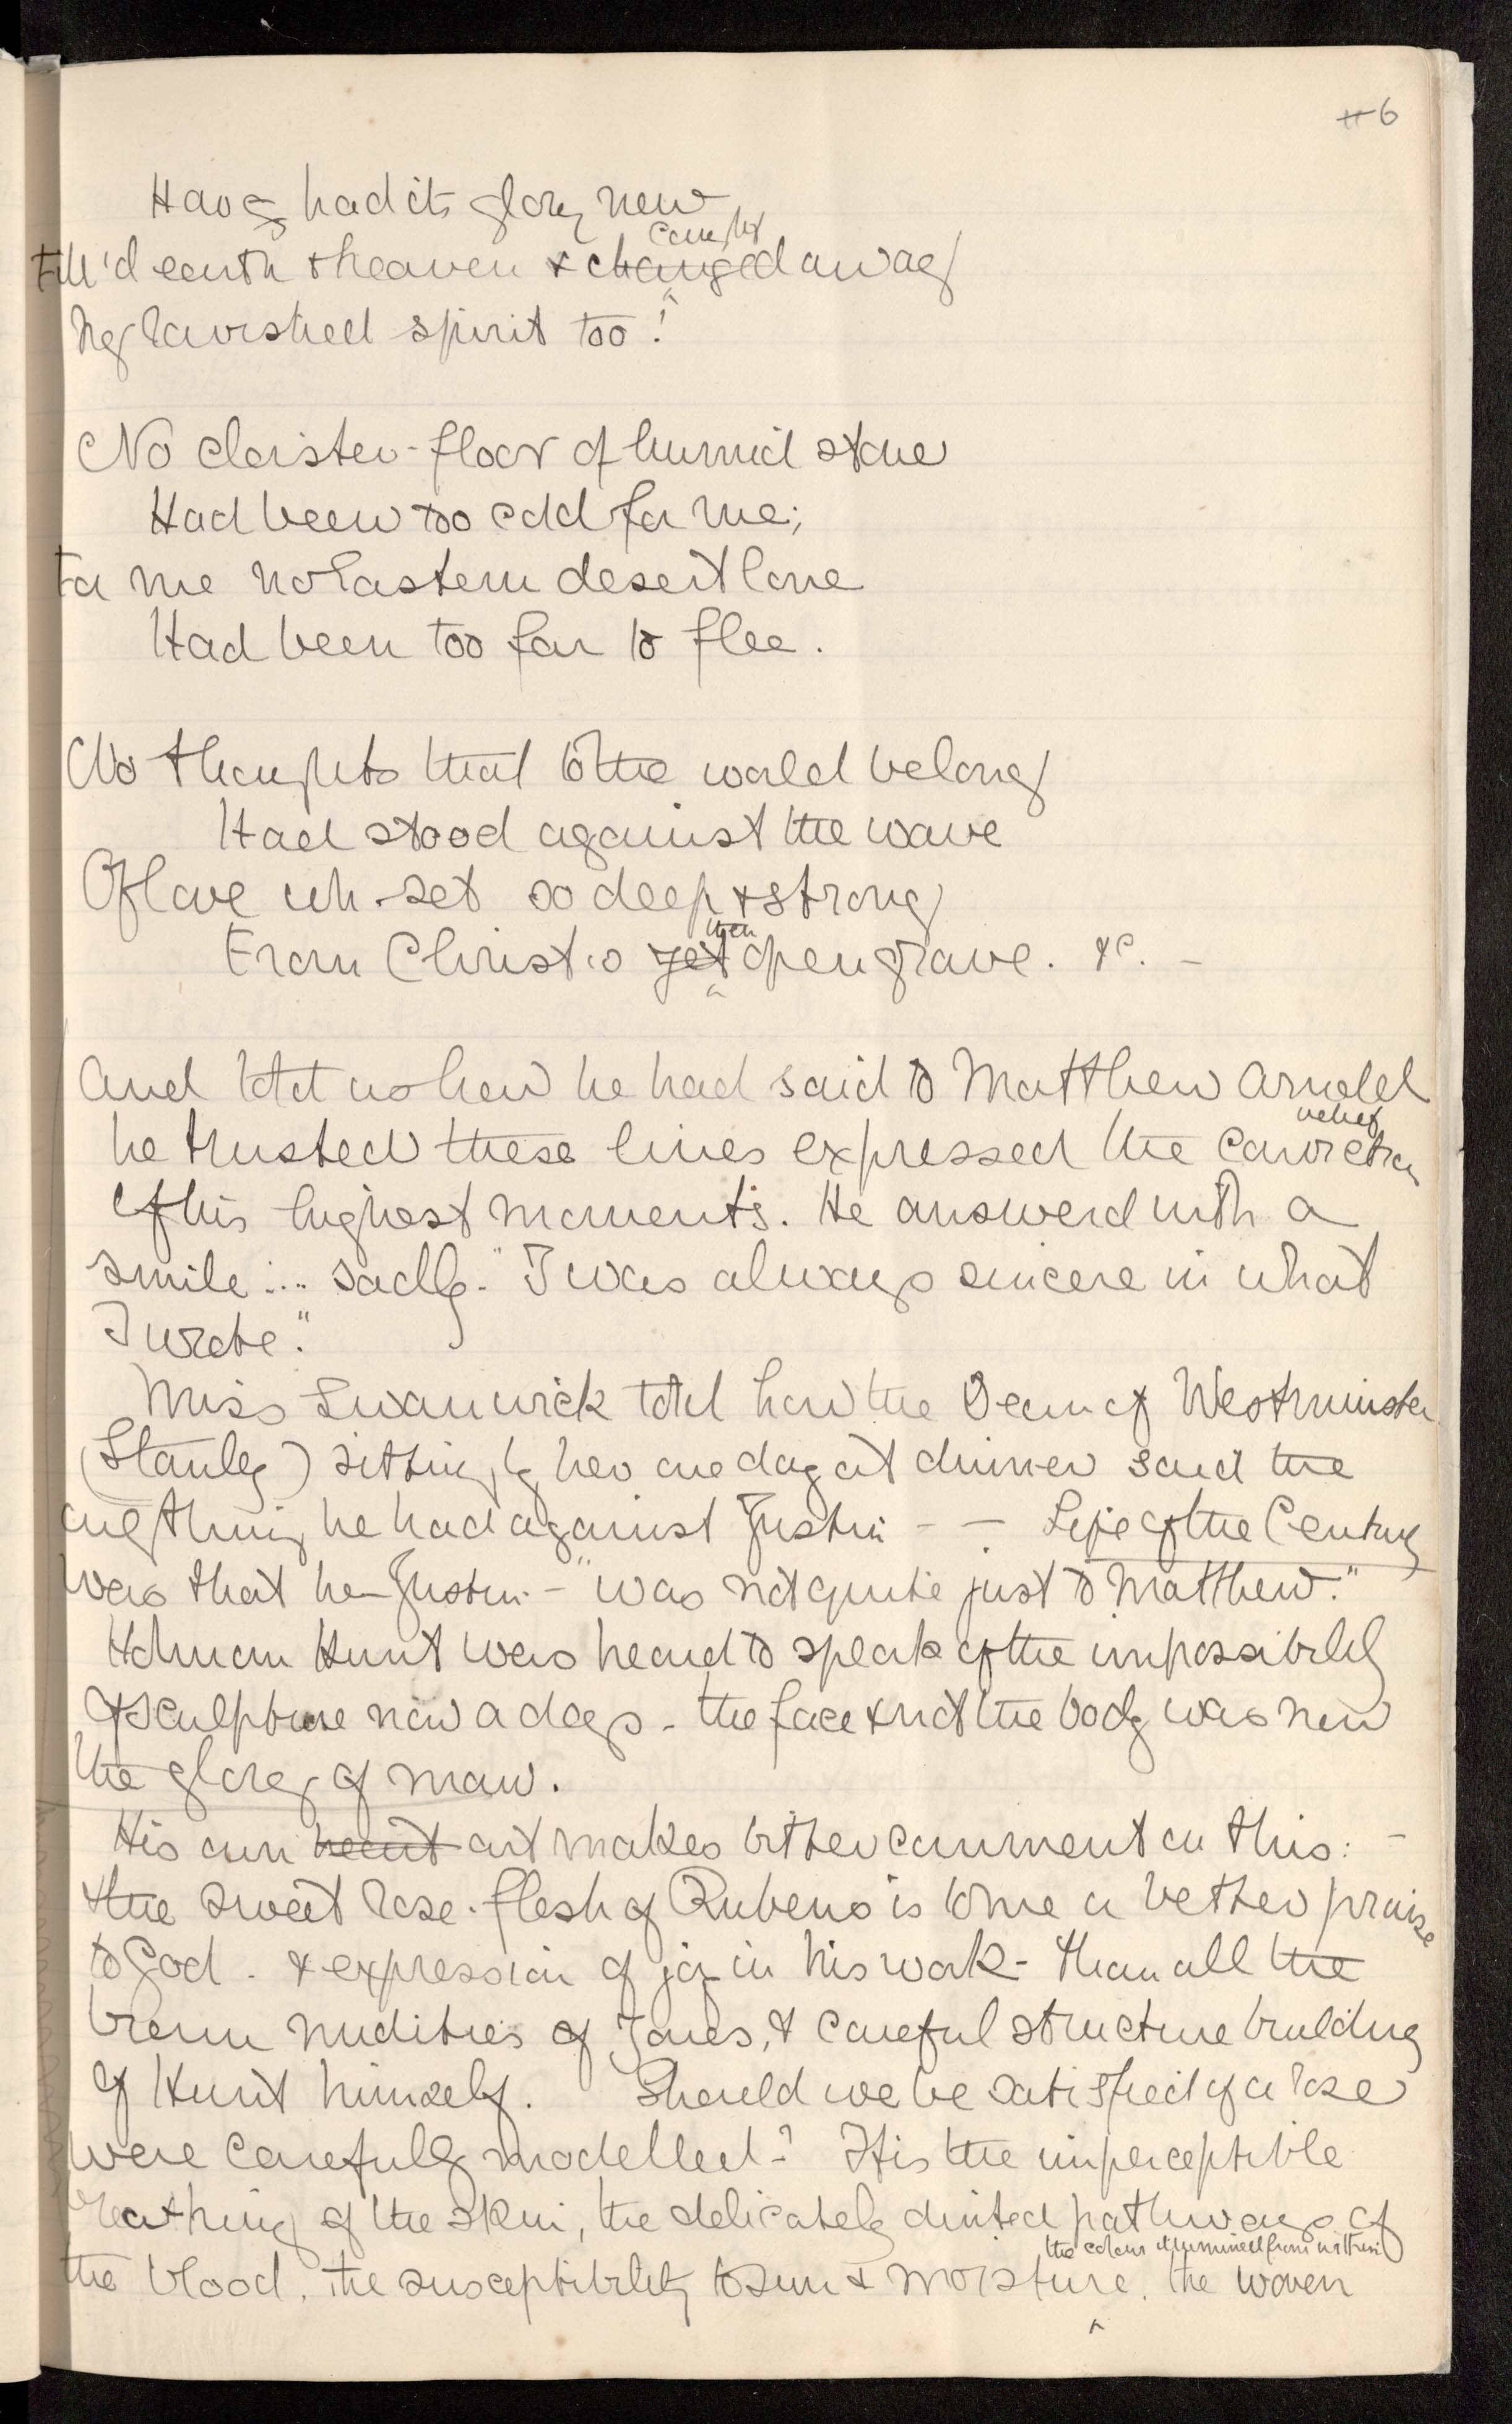 6
Have had its glory new
Fill'd earth & heaven & caught changed away
My ravished spirit too!
No cloister-floor of humid stone
Had been too cold for me;
For me no Eastern desert lone
Had been too far to flee.
No thoughts that to the world belong
Had stood against the wave
Of love wh. set so deep & strong
From Christ's yet then open grave. &c. -
And told us how he had said to Matthew Arnold
he trusted these lines expressed the conviction belief
of his highest moments. He answered with a
smile ... sadly. "I was always sincere in what
I wrote."
Miss Swanwick told how the Dean of Westminster
(Stanley) sitting by her one day at dinner said the
only thing he had against Justin - - Life of the Century
was that he - Justin - "was not quite just to Matthew."
Holman Hunt was heard to speak of the impossibility
of sculpture now a days - the face & not the body was now
the glory of man.
His own heart art makes bitter comment on this: -
the sweet rose-flesh of Rubens is to me a better praise
to God - & expression of joy in his work - than all the
brown nudities of Jones, & careful structure building
of Hunt himself. Should we be satisfied if a rose
were carefully modelled? It is the imperceptible
breathing of the skin, the delicately pathways of
the blood, the susceptibility to sun & moisture, the colour illumined from within the woven